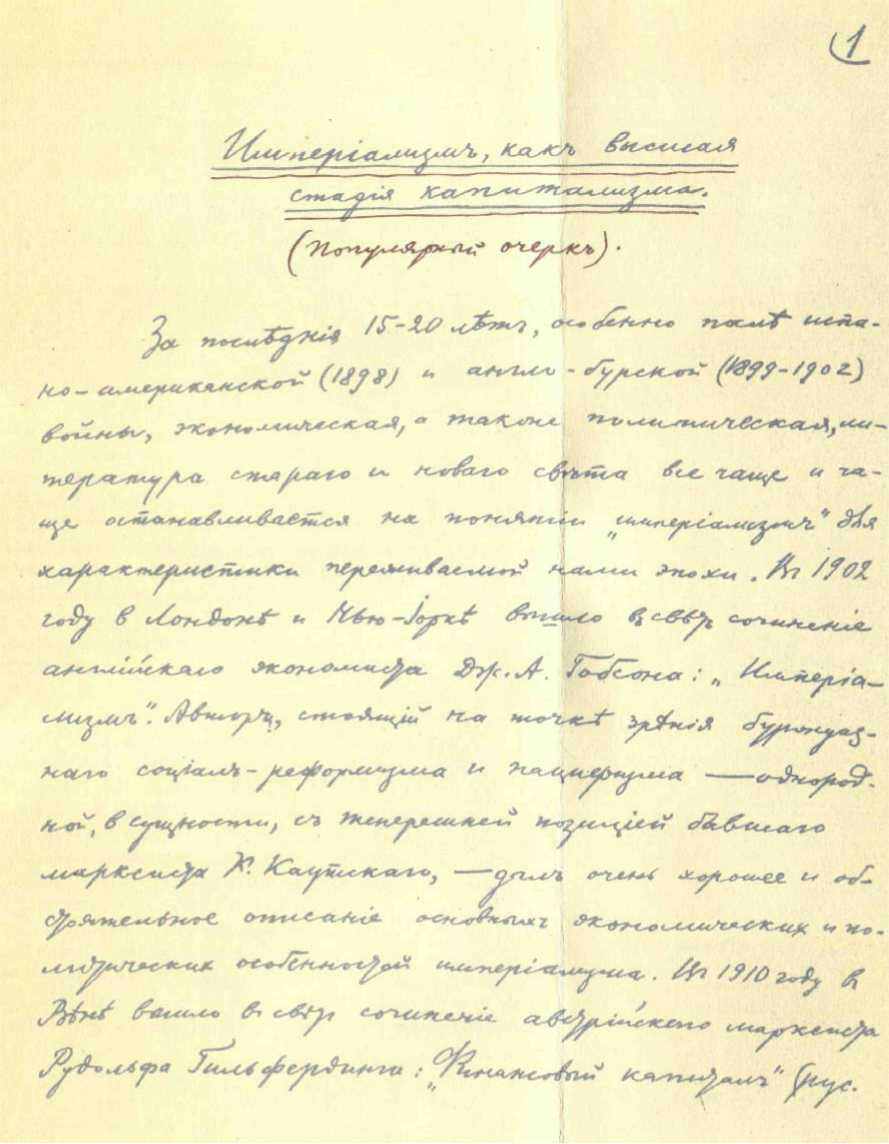 1
Имперіализмъ, какъ высшая
стадія капитализма.
(Популярный очеркъ).
За послѣднія 15-20 лѣтъ, особенно послѣ испа-
но-американской (1898) и англо-бурской (1899-1902)
войны, экономическая, а также политическая, ли-
тература стараго и новаго свѣта все чаще и ча-
ще останавливается на понятіи „имперіализмъ“ для
характеристики переживаемой нами эпохи. Въ 1902
году в Лондонѣ и Нью-Іоркѣ вышло в свѣтъ сочиненіе
англійскаго экономиста Дж. А. Гобсона: „Имперіа-
лизмъ“. Авторъ, стоящій на точкѣ зрѣнія буржуаз-
наго соціалъ-реформизма и пацифизма — однород-
ной, в сущности, съ теперешней позиціей бывшаго
марксиста К. Каутскаго, — далъ очень хорошее и об-
стоятельное описаніе основныхъ экономических и по-
литических особенностей имперіализма. Въ 1910 году в
Вѣнѣ вышло в свѣтъ сочиненіе австрійскаго марксиста
Рудольфа Гильфердинга: „Финансовый капиталъ“ (рус.